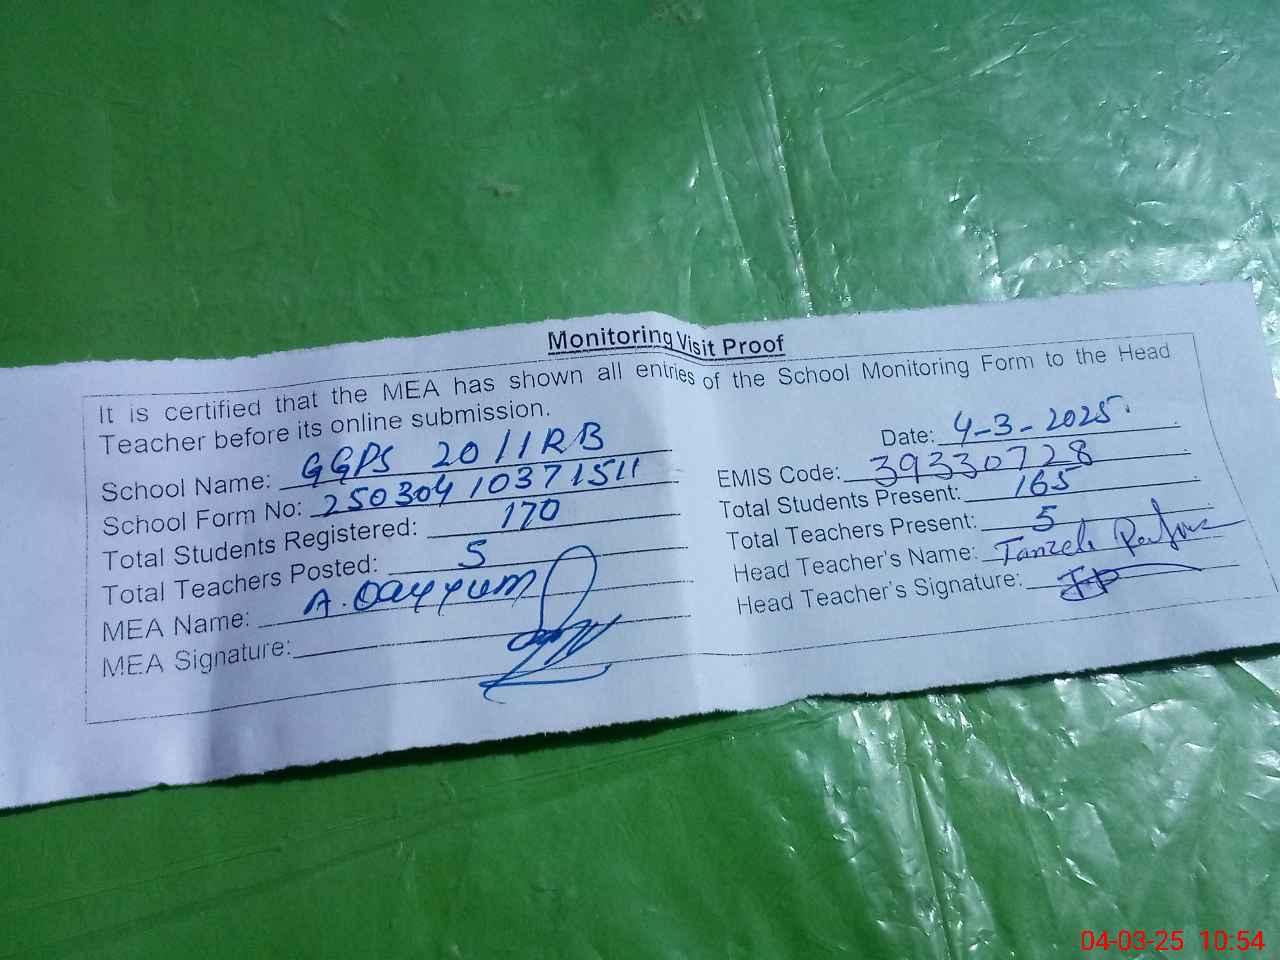 Monitoring Visit Proof
It is certified that the MEA has shown all entries of the School Monitoring Form to the Head
Teacher before its online submission.
Date: 4-3-2025
School Name: GGPS 201/RB
EMIS Code: 39330728
School Form No: 25030410371511
Total Students Present: 165
Total Students Registered: 170
Total Teachers Present: 5
Total Teachers Posted: 5
Head Teacher's Name: Tanzela
MEA Name: A. Qayyum
Head Teacher's Signature:
MEA Signature:
04-03-25 10:54